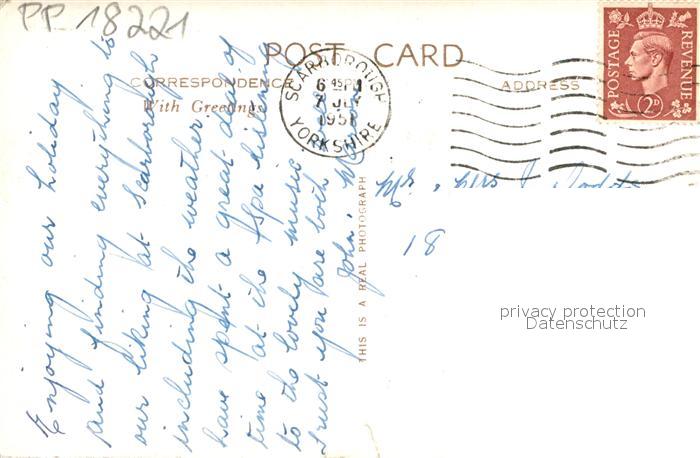 PP 18221
POST CARD
CORRESPONDENCE
ADDRESS
With Greetings
SCARBOROUGH
6 45 PM
1951
YORKSHIRE
POSTAGE
REVENUE
2D
Enjoying our holiday
and finding everything to
our liking at Scarborough
including the weather. We
have spent a great deal of
time at the Spa listening
to the lovely music.
Trust you are both well
John,
THIS IS A REAL PHOTOGRAPH
Mr , Mrs
18
privacy protection
Datenschutz